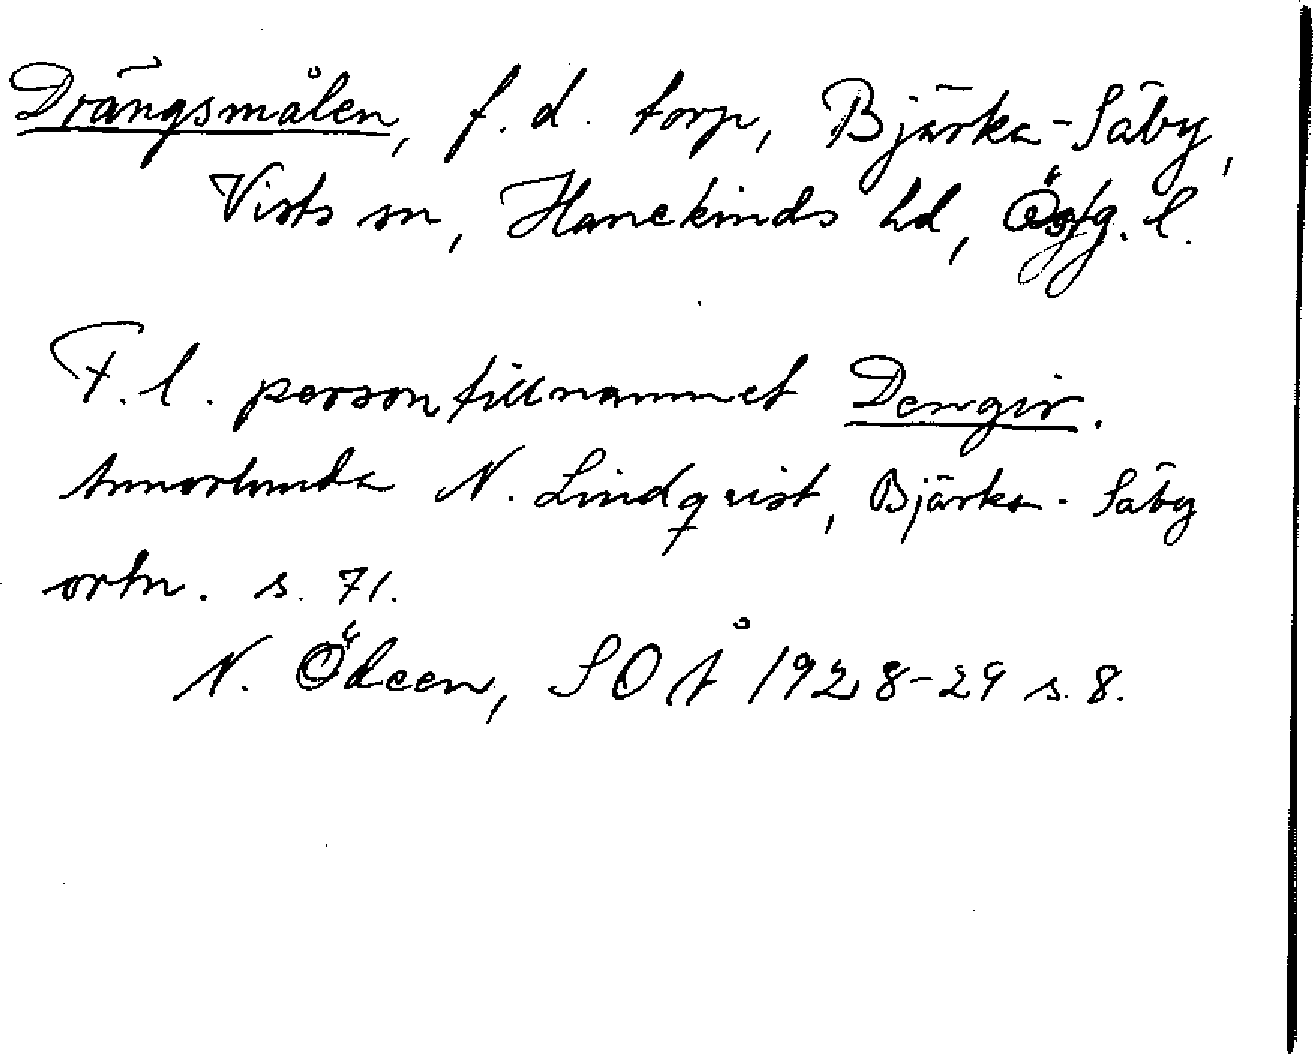 Drängsmålen, f. d. torp, Bjärka-Säby,
Vists sn, Hanekinds hd, Östg. l.
F. l. persontillnamnet Dengir.
Annorlunda N. Lindqvist, Bjärka-Säby
ortn. s. 71.
N. Ödeen, SOÅ 1928-29 s. 8.